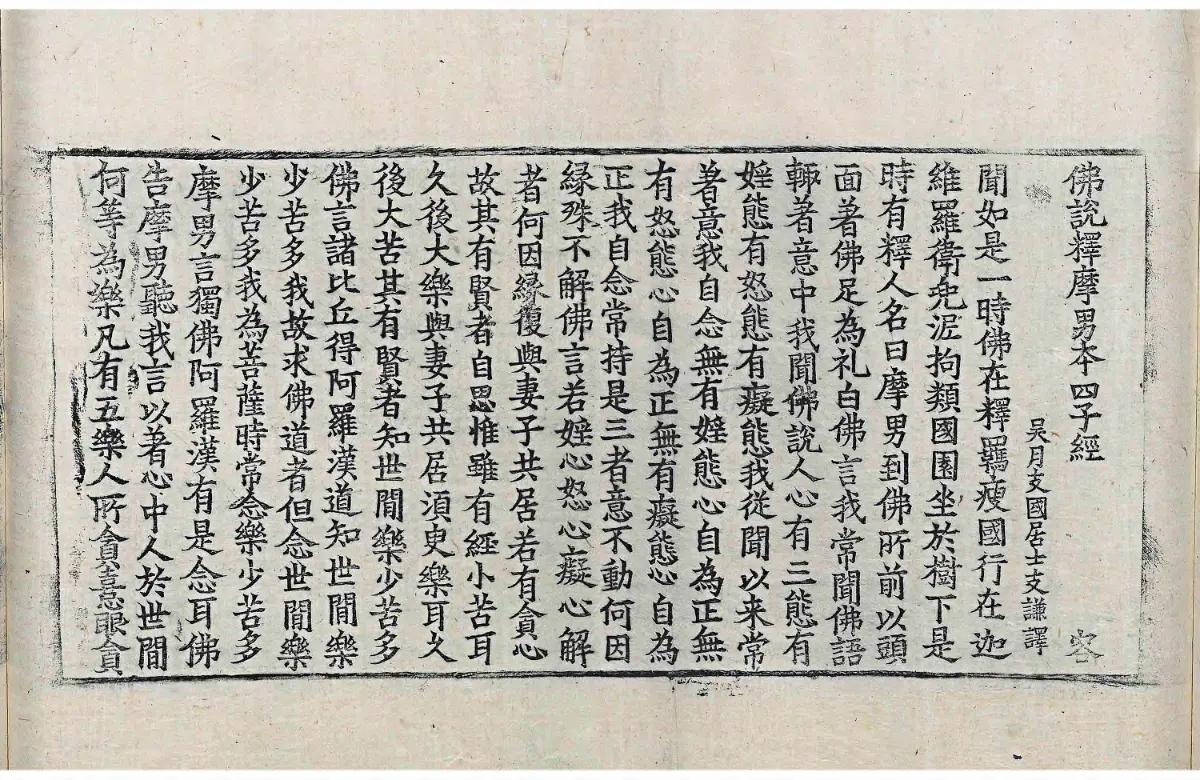 佛說釋摩男夲四子經　容
吳月支國居士支謙譯
聞如是一時佛在釋羈瘦國行在迦
維羅衛兜泥拘類國園坐於樹下是
時有釋人名曰摩男到佛所前以頭
面著佛足為礼白佛言我常聞佛語
輙著意中我聞佛說人心有三態有
婬態有怒態有癡態我從聞以来常
著意我自念無有婬態心自為正無
有怒態心自為正無有癡態心自為
正我自念常持是三者意不動何因
縁殊不解佛言若婬心怒心癡心解
者何因縁復與妻子共居若有貪心
故其有賢者自思惟雖有經小苦耳
久後大樂與妻子共居湏臾樂耳久
後大苦其有賢者知世間樂少苦多
佛言諸比丘得阿羅漢道知世間樂
少苦多我故求佛道者但念世間樂
少苦多我為菩薩時常念樂少苦多
摩男言獨佛阿羅漢有是念耳佛
告摩男聽我言以著心中人於世間
何等為樂凡有五樂人所貪憙眼貪